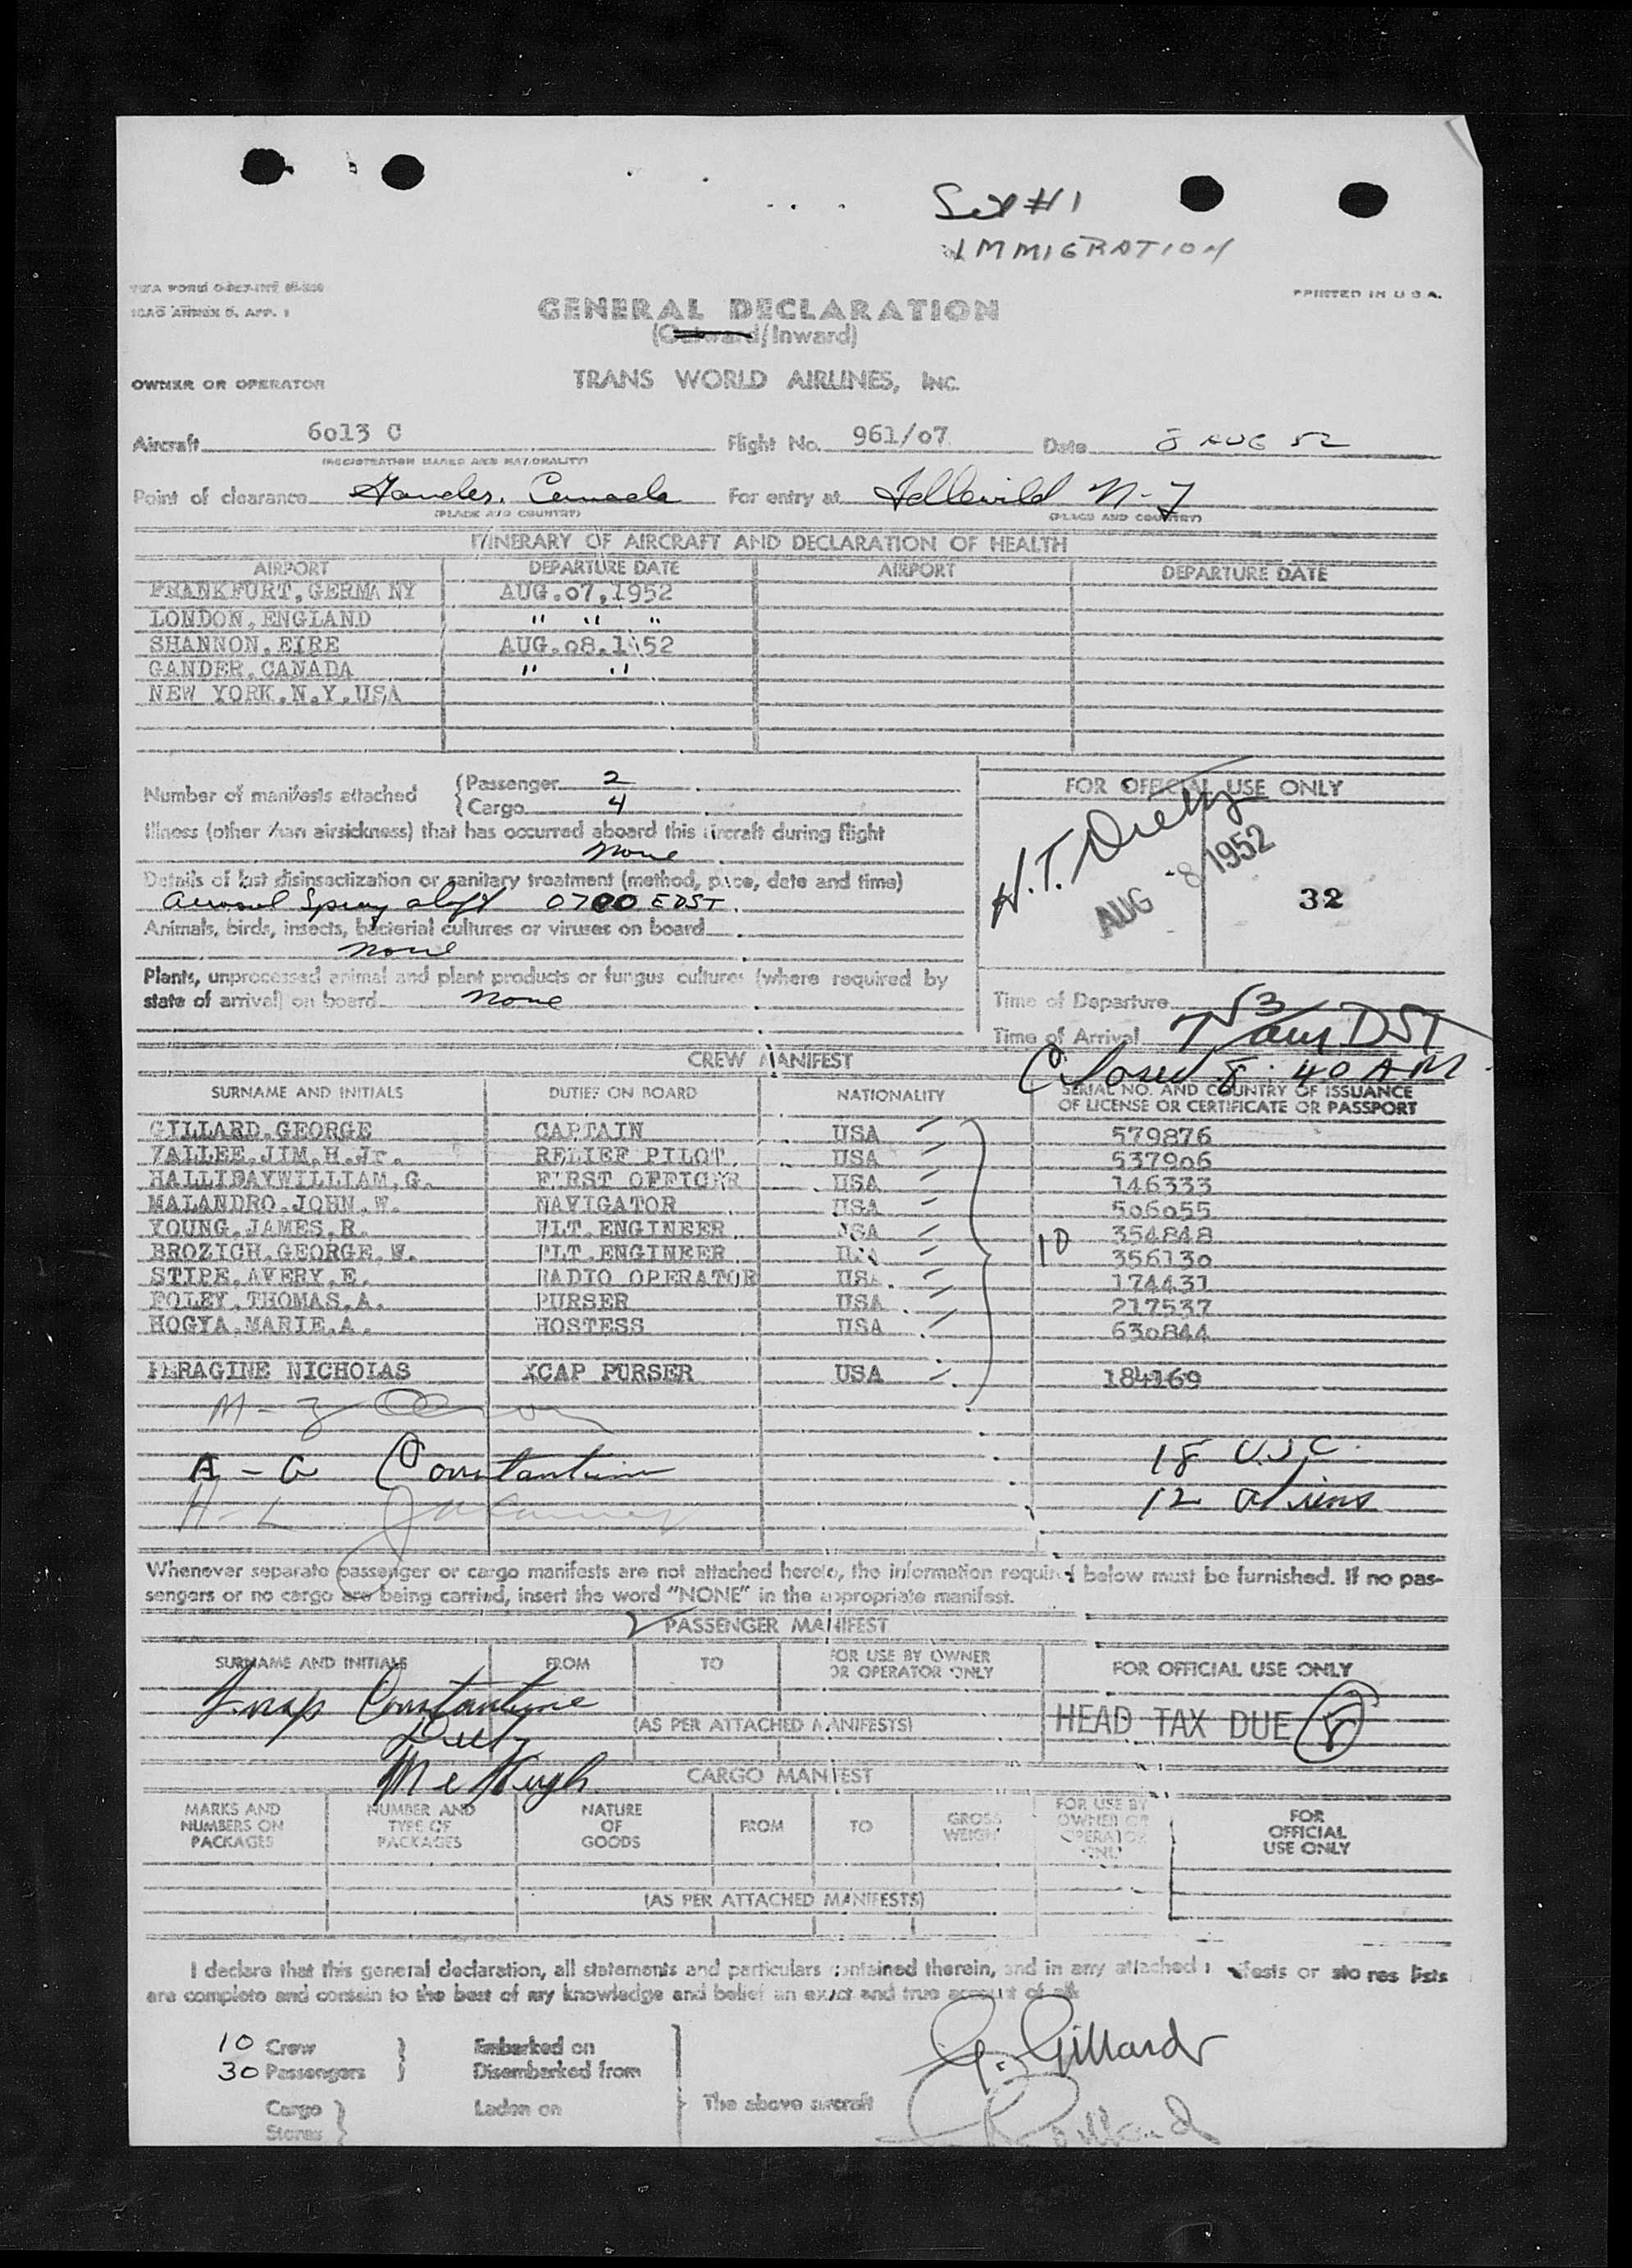 Set #1
IMMIGRATION
PRINTED IN U.S.A.
ICAO ANNEX 9, APP. 1
GENERAL DECLARATION
(Outward/Inward)
OWNER OR OPERATOR TRANS WORLD AIRLINES, INC.
Aircraft 6013 C Flight No. 961/07 Date 8 AUG 52
(REGISTRATION MARKS AND NATIONALITY)
Point of clearance Gander, Canada For entry at Idlewild N-Y
(PLACE AND COUNTRY) (PLACE AND COUNTRY)
ITINERARY OF AIRCRAFT AND DECLARATION OF HEALTH
AIRPORT DEPARTURE DATE AIRPORT DEPARTURE DATE
FRANKFURT,GERMANY AUG.07,1952
LONDON,ENGLAND " " "
SHANNON,EIRE AUG.08.1952
GANDER,CANADA " "
NEW YORK,N.Y.USA
Number of manifests attached
Passenger 2
Cargo 4
Illness (other than airsickness) that has occurred aboard this aircraft during flight
None
Details of last disinsectization or sanitary treatment (method, place, date and time)
Aerosol Spray aloft 0700 EDST
Animals, birds, insects, bacterial cultures or viruses on board
None
Plants, unprocessed animal and plant products or fungus cultures (where required by
state of arrival) on board None
FOR OFFICIAL USE ONLY
H.T. Dietz
AUG -8 1952
32
Time of Departure
Time of Arrival 7 53 am DST
Closed 8:40 AM
CREW MANIFEST
SURNAME AND INITIALS DUTIES ON BOARD NATIONALITY SERIAL NO. AND COUNTRY OF ISSUANCE
OF LICENSE OR CERTIFICATE OR PASSPORT
GILLARD.GEORGE CAPTAIN USA 579876
VALLEE.JIM.H.Jr. RELIEF PILOT. USA 537906
HALLIDAYWILLIAM,G. FIRST OFFICER USA 146333
MALANDRO.JOHN.W. NAVIGATOR USA 506055
YOUNG.JAMES.R. FLT.ENGINEER USA 354848
BROZICH.GEORGE.W. FLT.ENGINEER USA 10 356130
STIPE.AVERY.E. RADIO OPERATOR USA 174431
FOLEY.THOMAS.A. PURSER USA 217537
HOGYA.MARIE.A. HOSTESS USA 630844
PERAGINE NICHOLAS XCAP PURSER USA 184169
M - Z
A - G Constantine 18 U.S.C.
H - L 12 aliens
Whenever separate passenger or cargo manifests are not attached hereto, the information required below must be furnished. If no pas-
sengers or no cargo are being carried, insert the word "NONE" in the appropriate manifest.
PASSENGER MANIFEST
SURNAME AND INITIALS FROM TO FOR USE BY OWNER
OR OPERATOR ONLY FOR OFFICIAL USE ONLY
Insp Constantine
Dietz
McHugh
(AS PER ATTACHED MANIFESTS) HEAD TAX DUE 8
CARGO MANIFEST
MARKS AND
NUMBERS ON
PACKAGES
NUMBER AND
TYPE OF
PACKAGES
NATURE
OF
GOODS
FROM TO
GROSS
WEIGHT
FOR USE BY
OWNER OR
OPERATOR
ONLY
FOR
OFFICIAL
USE ONLY
(AS PER ATTACHED MANIFESTS)
I declare that this general declaration, all statements and particulars contained therein, and in any attached manifests or stores lists
are complete and contain to the best of my knowledge and belief an exact and true account of all
10 Crew Embarked on
30 Passengers Disembarked from
Cargo Laden on The above aircraft
Stores
G. Gillard
G. Gillard